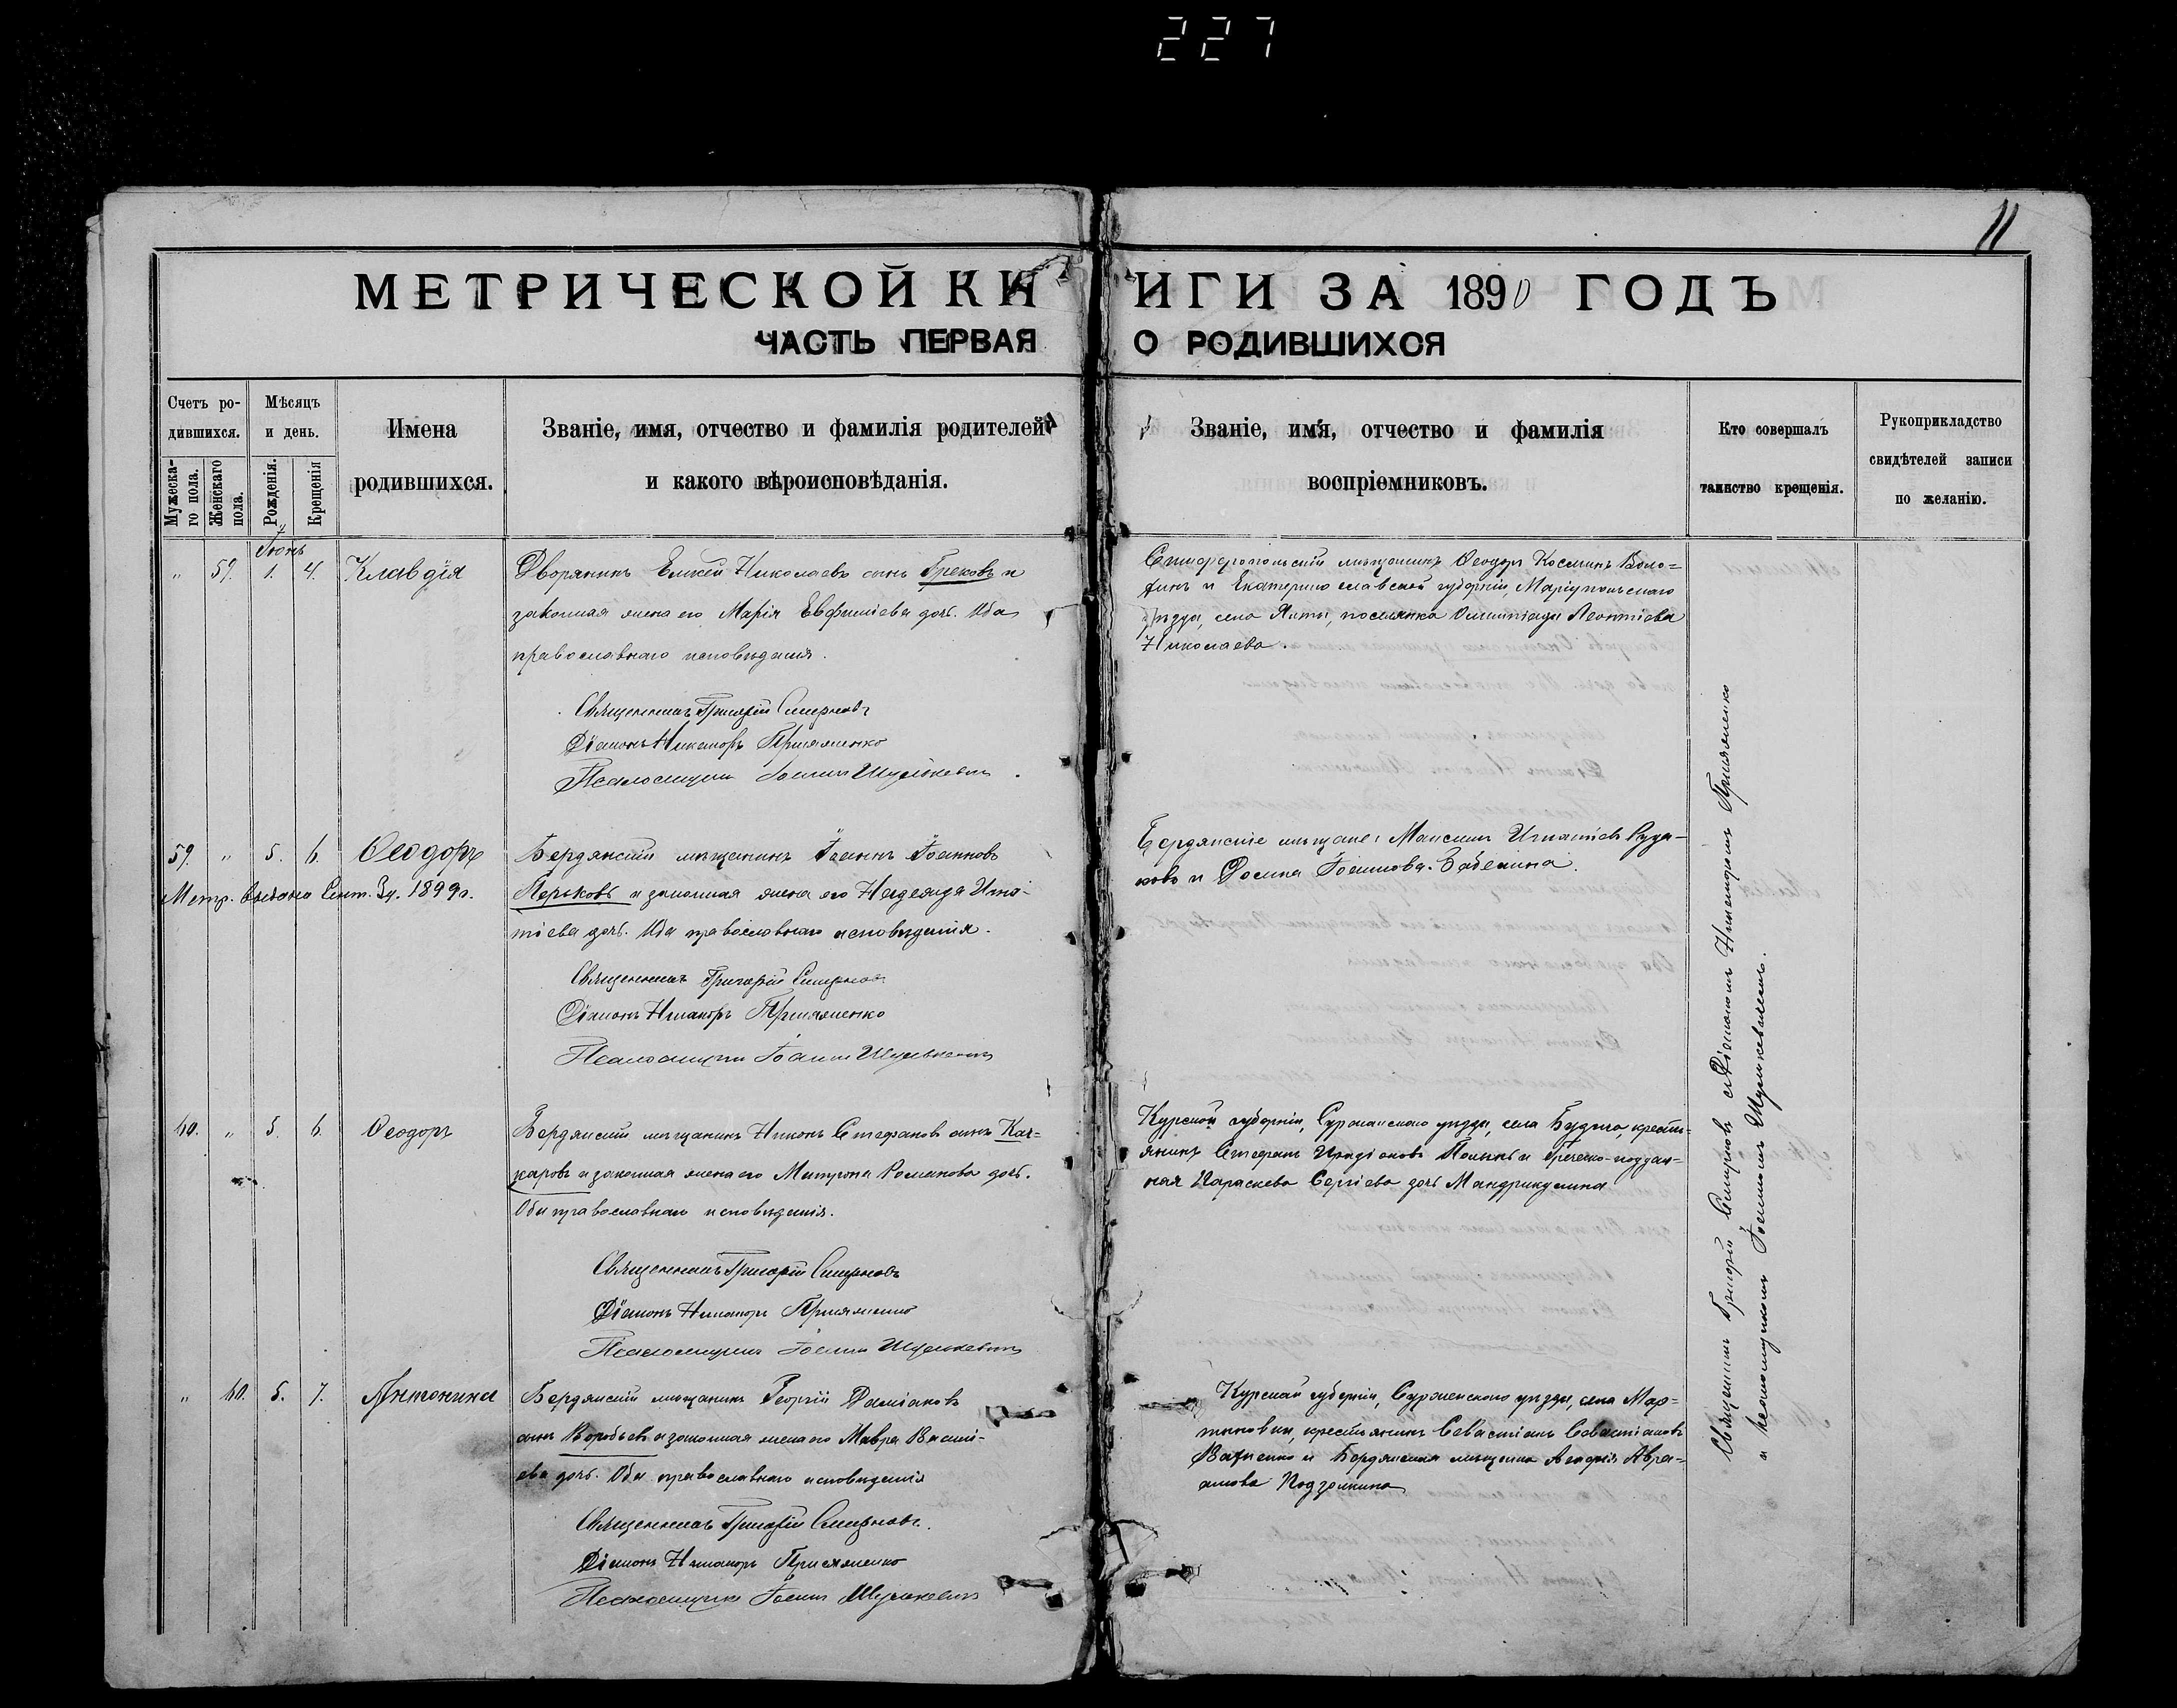 227
11
МЕТРИЧЕСКОЙ КНИГИ ЗА 1890 ГОДЪ
ЧАСТЬ ПЕРВАЯ О РОДИВШИХСЯ
Счетъ ро-
дившихся.
Мужеска-
го пола.
Женскаго
пола.
Мѣсяцъ
и день.
Рожденія.
Крещенія
Имена
родившихся.
Званіе, имя, отчество и фамилія родителей
и какого вѣроисповѣданія.
Званіе, имя, отчество и фамилія
воспріемниковъ.
Кто совершалъ
таинство крещенія.
Рукоприкладство
свидѣтелей записи
по желанію.
Іюнь
" 59. 1. 4. Клавдія
Дворянинъ Николаевъ сынъ Грековъ и
законная жена его Марія Евфиміева дочь. Оба
православнаго исповѣданія.
Священникъ Григорій Смирновъ
Діаконъ Никаноръ Присяженко
Псаломщикъ Іоаннъ Шулькевичъ
Симферопольскій мѣщанинъ Ѳеодоръ Косминъ Воло-
и Екатеринославской губерніи, Маріупольскаго
уѣзда, села Ялты, поселянка Олимпіада Леонтіева
Николаева.
59. " 5. 6. Ѳеодоръ
Метр. выдана Сент. 1899 г.
Бердянскій мѣщанинъ Іоаннъ Іоанновъ
Перьковъ и законная жена его Надежда Игна-
тіева дочь. Оба православнаго исповѣданія.
Священникъ Григорій Смирновъ
Діаконъ Никаноръ Присяженко
Псаломщикъ Іоаннъ Шулькевичъ
Бердянскіе мѣщане: Максимъ Игнатіевъ Руда-
ковъ и Домна Іоаннова Бабенина.
60. " 5. 6. Ѳеодоръ
Бердянскій мѣщанинъ Никонъ Стефановъ сынъ Кач-
каровъ и законная жена его Матрона Романова дочь.
Оба православнаго исповѣданія.
Священникъ Григорій Смирновъ
Діаконъ Никаноръ Присяженко
Псаломщикъ Іоаннъ Шулькевичъ
Курской губерніи, Суджанскаго уѣзда, села кресть-
янинъ Стефанъ и Греческо-поддан-
ная Параскева Сергіева дочь Мандрикулина
" 60. 5. 7. Антонина
Бердянскій мѣщанинъ Георгій Даміановъ
сынъ Воробьевъ и законная жена его Мавра Васи-
ева дочь. Оба православнаго исповѣданія
Священникъ Григорій Смирновъ.
Діаконъ Никаноръ Присяженко
Псаломщикъ Іоаннъ Шулькевичъ
Курской губерніи, Суджанскаго уѣзда, села Мар-
тиновки, крестьянинъ Севастіанъ Севастіановъ
и Бердянская мѣщанка Агафія Авра-
амова
Священникъ Григорій Смирновъ съ Діакономъ Никаноромъ Присяженко
и псаломщикомъ Іоанномъ Шулькевичемъ.